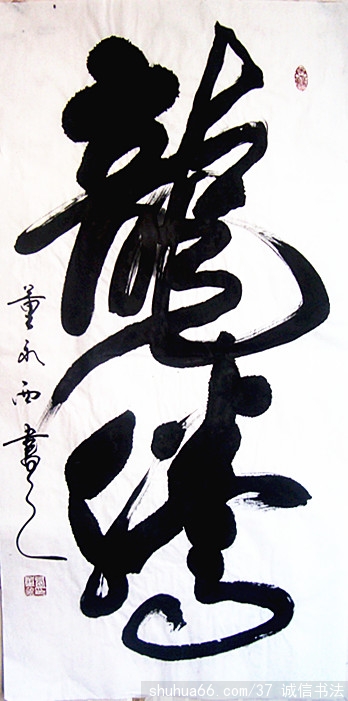 龍騰
董永西書之
shuhua66.com/37 诚信书法